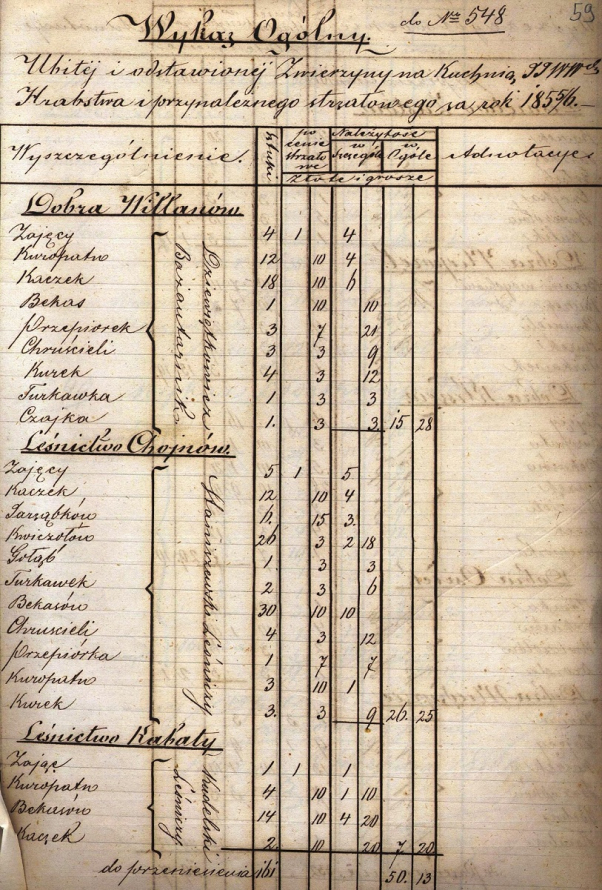 Wykaz Ogólny. do Nr 548 59
Ubitéj i odstawionéj Zwierzyny na Kuchnią JJWW
Hrabstwa i przynależnego strzałowego za rok 1855/6.
Wyszczególnienie. Sztuki. po cenie strzałowe Należytość w Szczególe w Ogóle Adnotacye
złote i grosze
Dobra Willanów
Dziewiątkowicz Bażantarnik
Zajęcy 4 1 4
Kuropatw 12 10 4
Kaczek 18 10 6
Bekas 1 10 10
Przepiorek 3 7 21
Chruścieli 3 3 9
Kurek 4 3 12
Turkawka 1 3 3
Czajka 1. 3 3 15 28
Leśnictwo Chojnów.
Staniszewski Leśniczy
Zajęcy 5 1 5
Kaczek 12 10 4
Jarząbków 6. 15 3.
Kwiczołów 26 3 2 18
Gołąb 1. 3 3
Turkawek 2 3 6
Bekasów 30 10 10
Chruścieli 4 3 12
Przepiórka 1 7 7
Kuropatw 3 10 1
Kurek 3. 3 9 26. 25
Leśnictwo Kabaty
Kudelski Leśniczy
Zając 1 1 1
Kuropatw 4 10 1 10
Bekasów 14 10 4 20
Kaczek 2. 10 20 7. 20
do przeniesienia 161 50. 13